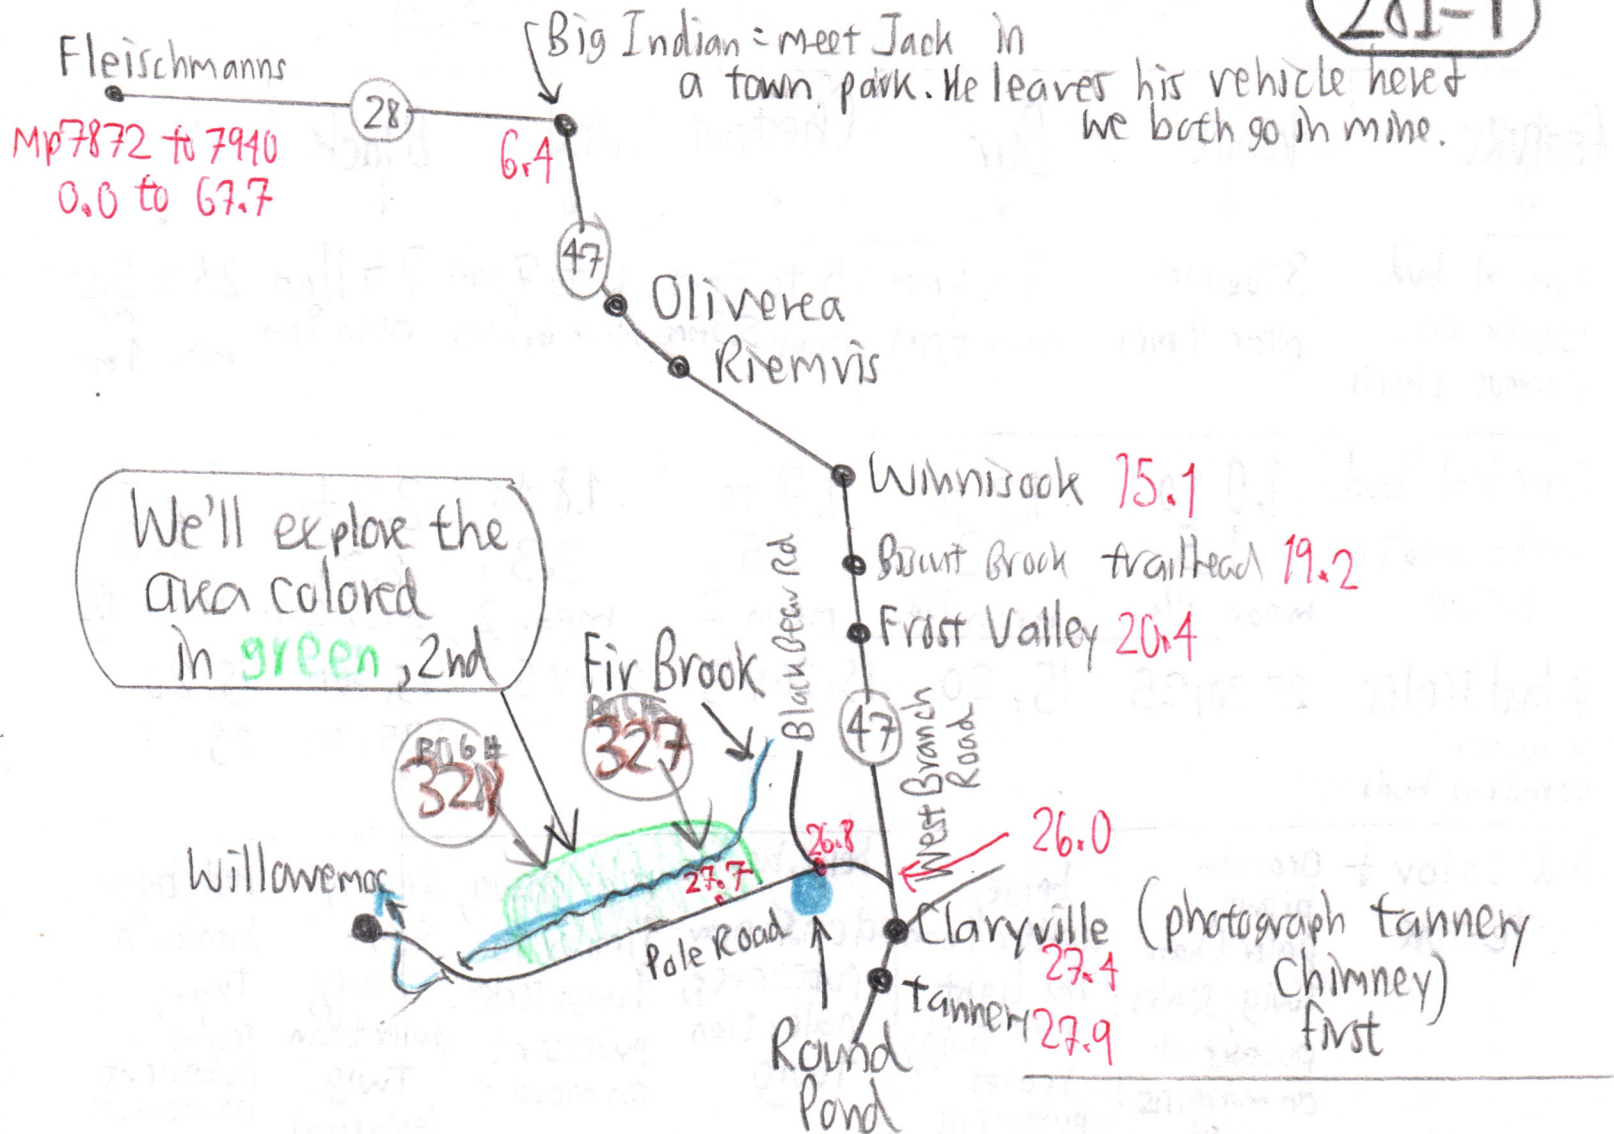 281-1
Fleischmanns
28
Big Indian = meet Jack in
a town park. He leaves his vehicle here &
we both go in mine.
Mp 7872 to 7940
0.0 to 67.7
6.4
47
Oliverea
Riemvis
Winnisook 15.1
Biscuit Brook trailhead 19.2
Frost Valley 20.4
We'll explore the
area colored
in green, 2nd
Fir Brook
Black Bear Rd
47
West Branch
Road
327
26.0
26.8
27.7
Willowemoc
Pole Road
Claryville (photograph tannery
Chimney)
first
27.4
tannery 27.9
Round
Pond